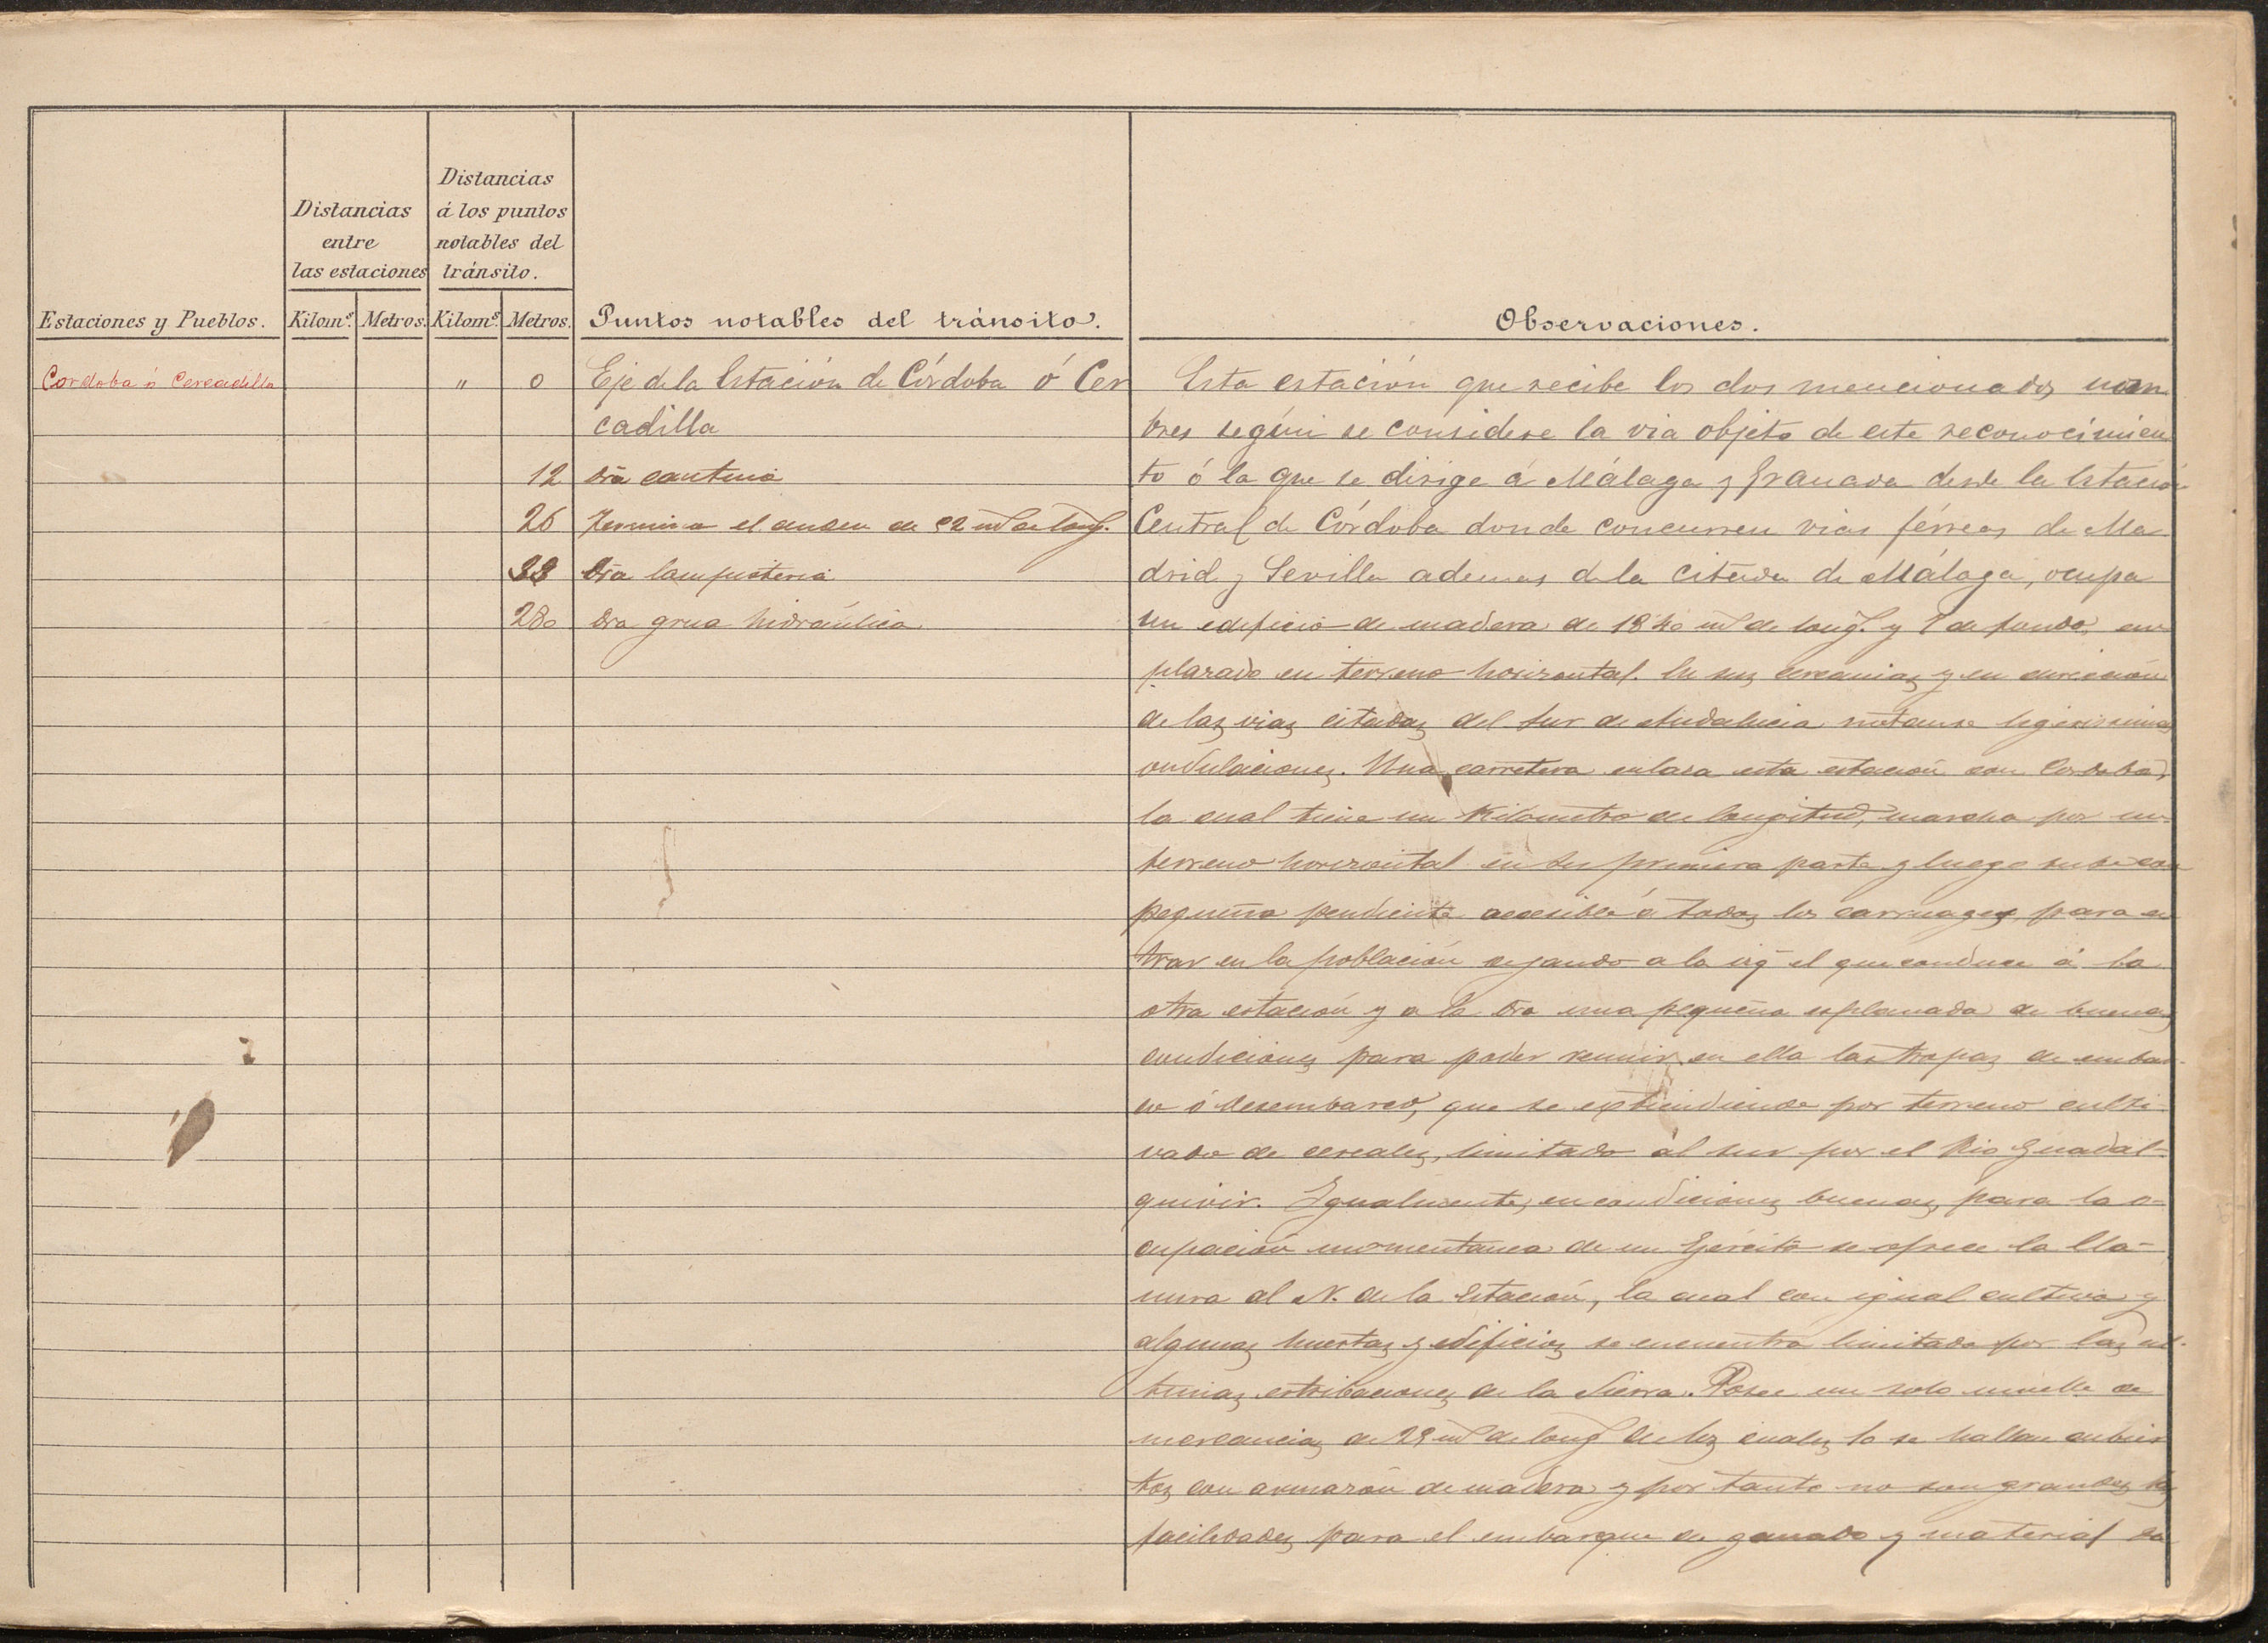 Distancias
Distancias á los puntos
entre notables del
las estaciones tránsito.
Estaciones y Pueblos. Kilomˢ. Metros. Kilomˢ. Metros. Puntos notables del tránsito. Observaciones.
Cordoba ó Cercadilla " 0 Eje de la Estación de Córdoba ó Cer
cadilla
12 Dra cantina
26 Termina el anden de 52 mˢ de long.
33 Dra lampisteria
280 Dra grua hidraúlica
Esta estación que recibe los dos mencionados nom
bres según se considere la via objeto de este reconocimien
to ó la que se dirige á Málaga y Granada desde la Estación
Central de Córdoba donde concurren vias férreas de Ma
drid y Sevilla ademas de la citada de Málaga, ocupa
un edificio de madera de de long. y de fondo, em
plazado en terreno horizontal. En sus cercanias y en dirección
de las vias citadas del Sur de Andalucia notanse ligerissimas
ondulaciones. Una carretera enlaza esta estación con Cordoba,
la cual tiene un Kilometro de longitud, marcha por un
terreno horizontal en su primera parte y luego sube con
pequeña pendiente accesible á todos los carruages, para en
trar en la población dejando a la izqª el que conduce á la
otra estación y a la dra una pequeña esplanada de buenas
condiciones para poder reunir en ella las tropas de embar-
co ó desembarco, que se extiendiende por terreno culti-
vado de cereales, limitado al sur por el Rio Guadal-
quivir. Igualmente, en condiciones buenas, para la o-
cupación momentanea de un Ejército se ofrece la lla-
nura al N. de la Estación, la cual con igual cultivo y
algunas huertas y edificios se encuentra limitada por las úl-
timas estribaciones de la Sierra. Posee un solo muelle de
mercancias de 29 mˢ de long de los cuales 10 se hallan cubier
tos con armazón de madera y por tanto no son grandes las
facilidades para el embarque de ganado y material